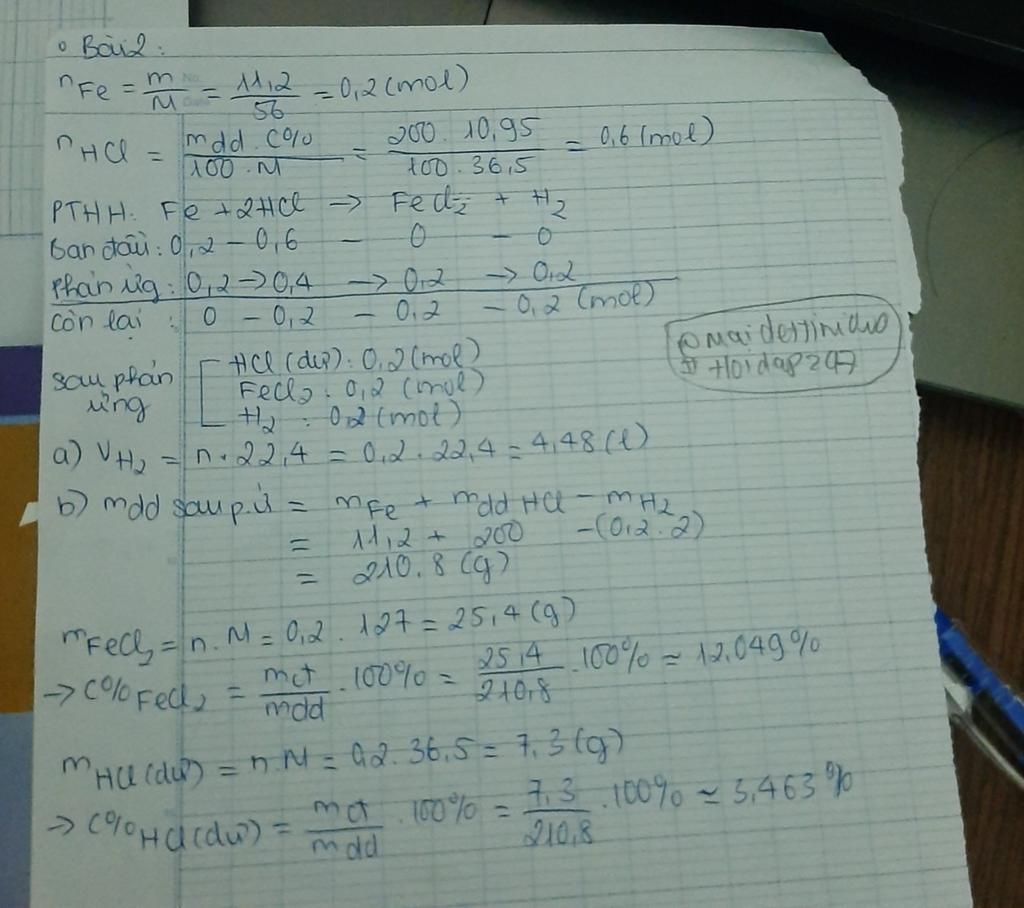 o Bài 2:
nFe = m/M = 11,2/56 = 0,2 (mol)
nHCl = mdd . C%/100 . M = 200 . 10,95/100 . 36,5 = 0,6 (mol)
PTHH: Fe + 2HCl → FeCl2 + H2
ban đầu: 0,2 – 0,6 – 0 – 0
phản ứng: 0,2 → 0,4 → 0,2 → 0,2
còn lại : 0 – 0,2 – 0,2 – 0,2 (mol)
sau phản ứng
HCl (dư): 0,2 (mol)
FeCl2 : 0,2 (mol)
H2 : 0,2 (mol)
# Hoidap247
a) VH2 = n . 22,4 = 0,2 . 22,4 = 4,48 (l)
b) mdd sau p.ứ = mFe + mdd HCl – mH2
= 11,2 + 200 – (0,2 . 2)
= 210.8 (g)
mFeCl2 = n . M = 0,2 . 127 = 25,4 (g)
→ C% FeCl2 = mct/mdd . 100% = 25,4/210,8 . 100% ≃ 12,049%
mHCl (dư) = n . M = 0,2 . 36,5 = 7,3 (g)
→ C% HCl (dư) = mct/mdd . 100% = 7,3/210,8 . 100% ≃ 3,463%